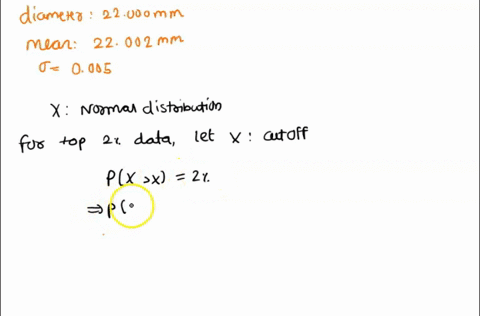 diameter: 22.000mm
mean: 22.002 mm
σ= 0.005
X: Normal distribution
for top 2% data, let x: cutoff
P(X >x) = 2%
⇒ P(